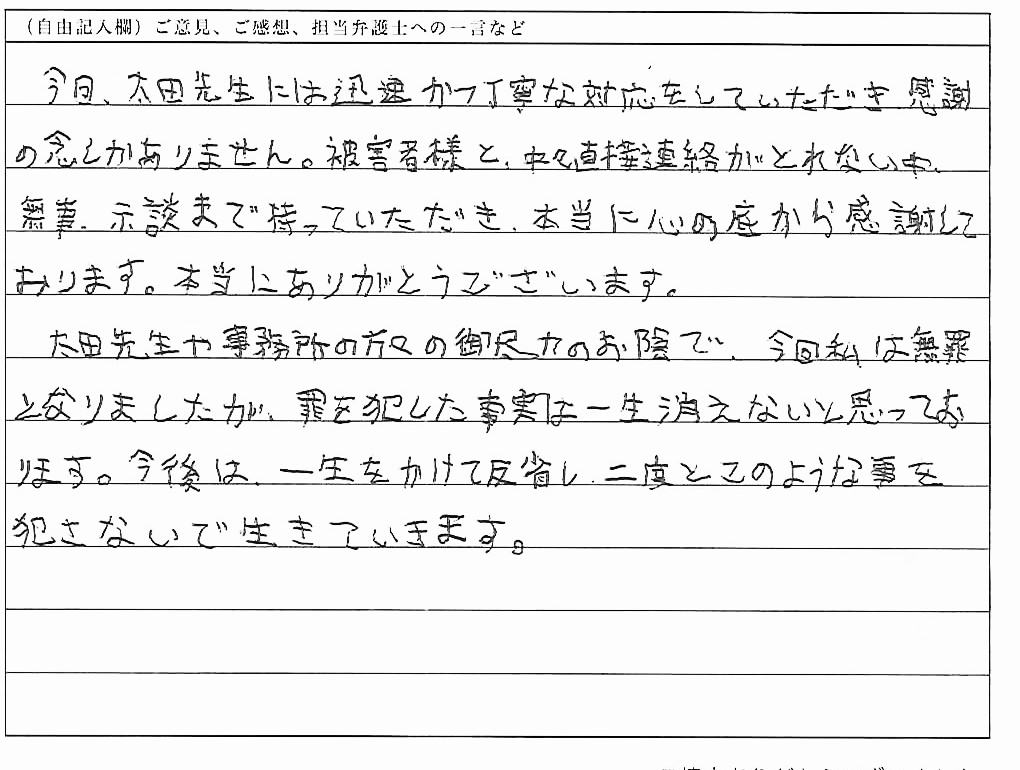 （自由記入欄）ご意見、ご感想、担当弁護士への一言など
今回、太田先生には迅速かつ丁寧な対応をしていただき感謝
の念しかありません。被害者様と、中々直接連絡がとれない中、
無事、示談まで持っていただき、本当に心の底から感謝して
おります。本当にありがとうございます。
太田先生や事務所の方々の御尽力のお陰で、今回私は無罪
となりましたが、罪を犯した事実は一生消えないと思ってお
ります。今後は、一生をかけて反省し、二度とこのような事を
犯さないで生きていきます。